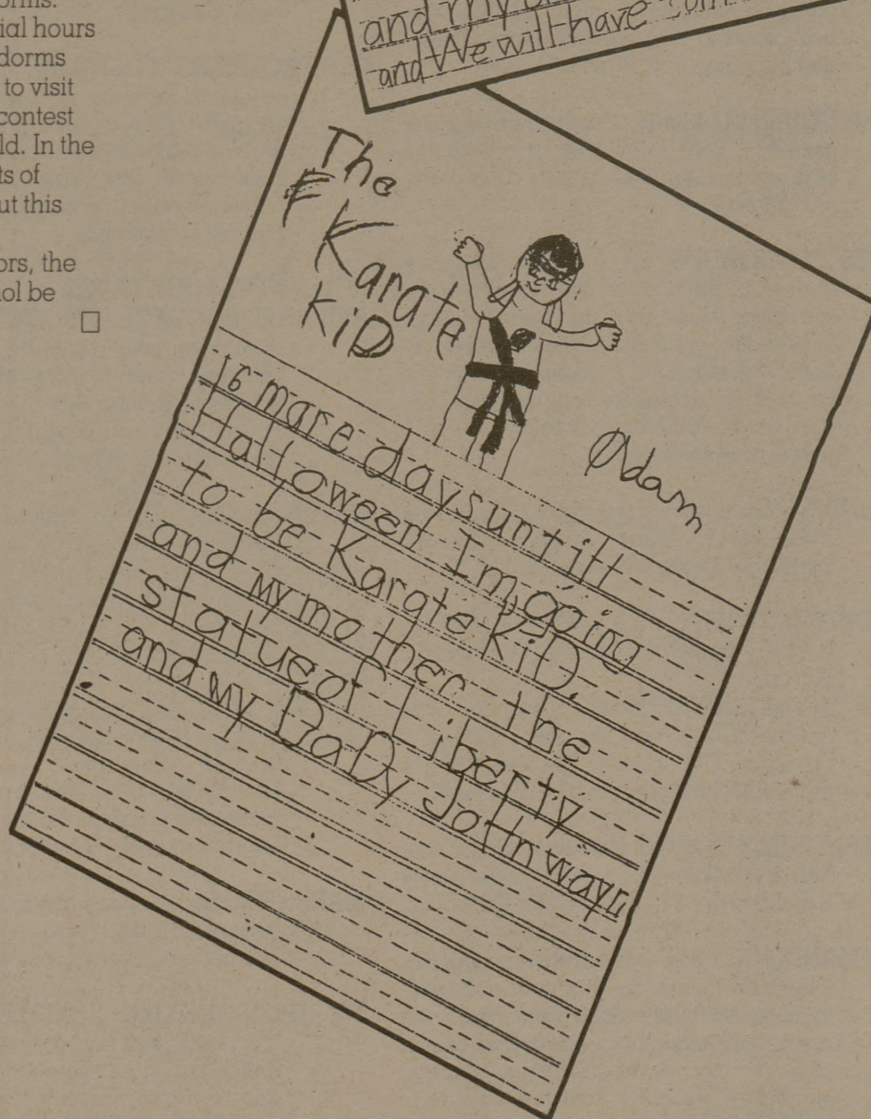 orms.
ial hours
dorms
to visit
contest
ld. In the
ts of
ut this
ors, the
nol be
and my
and We will have
The
Karate
KiD
Adam
16 mare days untill
Halloween Im going
to be Karate KiD.
and my mother the
statue of Liberty
and my DaDy John wayn